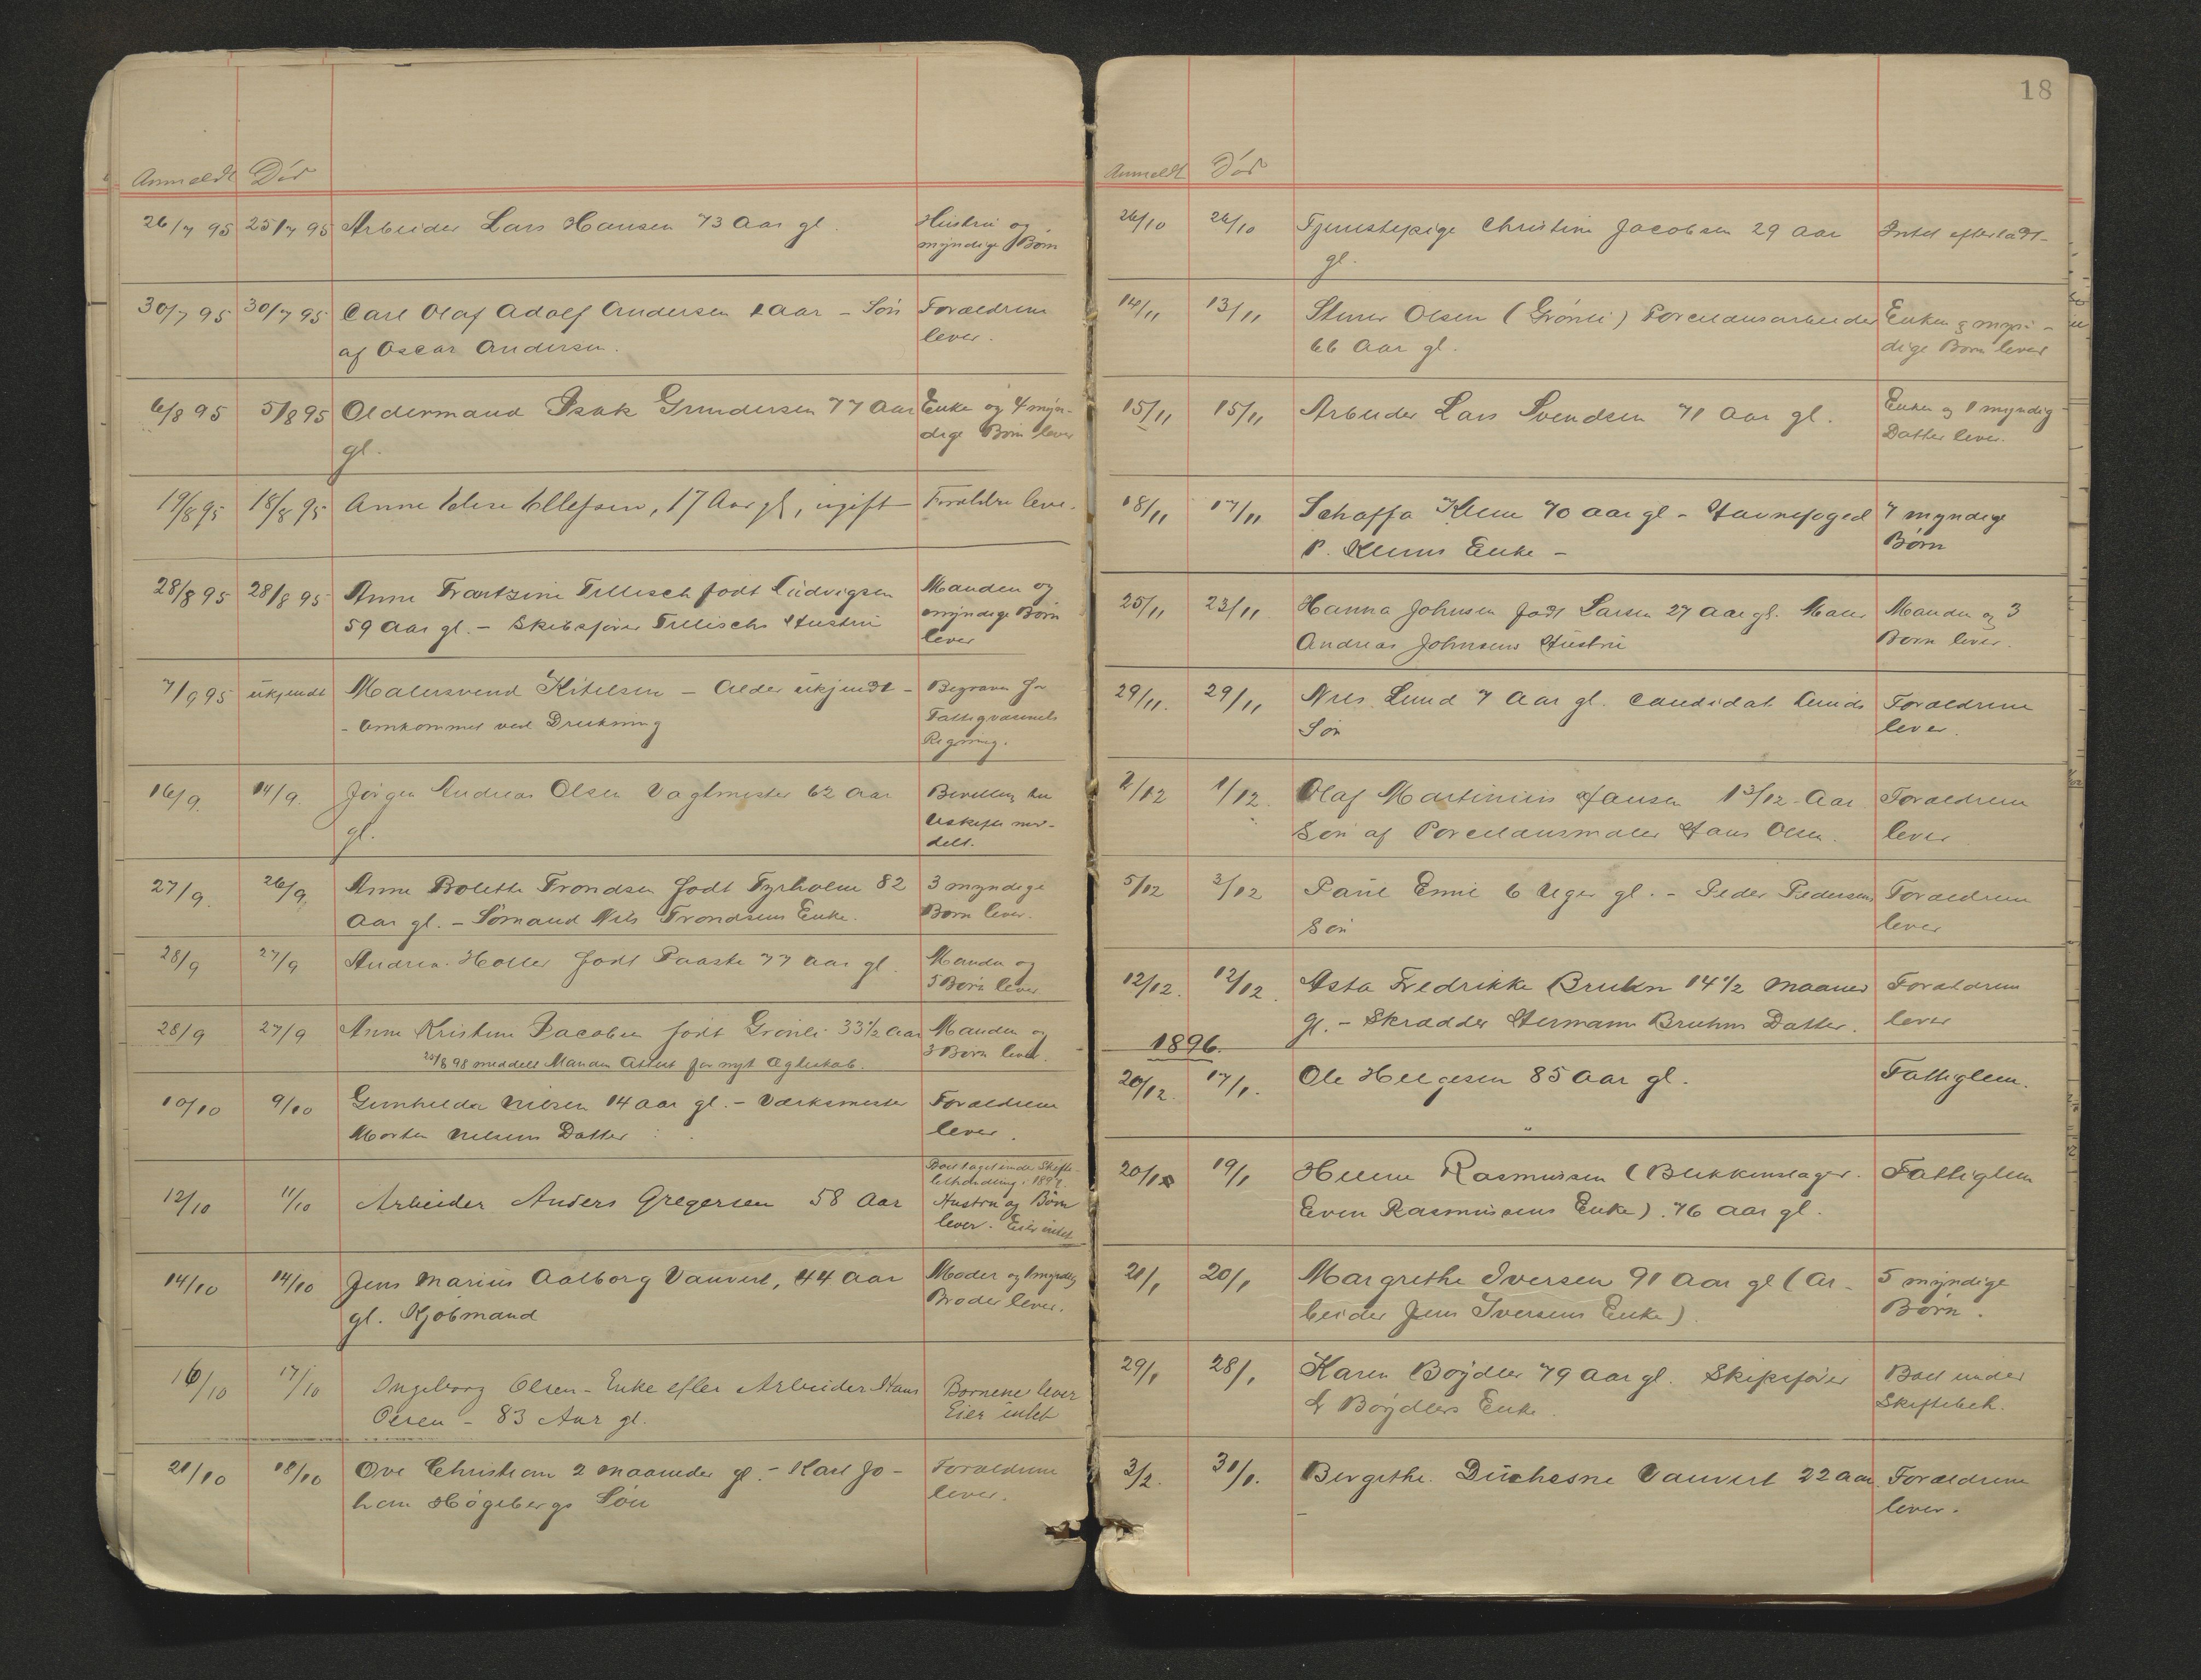 Anmeldt Död
26/7 95 25/7 95 Arbeider Lars Hansen 73 Aar gl. Hustru og
myndige Börn
30/7 95 30/7 95 Carl Olaf Adolf Andersen 1 Aar - Sön Forældrene
af Oscar Andersen. lever.
6/8 95 5/8 95 Oldermand Isak Gundersen 77 Aar Enke og 4 myn-
gl. dige Börn lever
19/8 95 18/8 95 Anne Ellefsen, 17 Aar gl, ugift Forældre leve.
28/8 95 28/8 95 Anne Frantzine Tellisch födt Ludvigsen Manden og
59 Aar gl. - Skibsförer Tellischs Hustru myndige Börn
lever
7/9 95 ukjendt Malersvend Kitelsen - Alder ukjendt - Begraven for
- Omkommet ved Drukning Fattigvæsnets
Regning.
16/9. 14/9. Jörgen Andreas Olsen Vagtmester 62 Aar Bevilling til
gl. Uskifte med-
delt.
27/9. 26/9. Anne Bolette Trondsen födt Tyrholm 82 3 myndige
Aar gl. - Sömand Nils Trondsens Enke. Börn lever.
28/9 27/9 Andrea Holler födt Paaske 77 Aar gl. Manden og
5 Börn lever
28/9 27/9 Anne Kristine Jacobsen födt Grönli 33 1/2 Aar Manden og
20/6 98 meddelt Manden Attest for nyt Ægteskab. 3 Börn lever.
10/10 9/10 Gunhilda Nilsen 14 Aar gl. - Værksmester Forældrene
Morten Nilsens Datter lever.
Boet taget under Skifte-
behandling i 1897.
12/10 11/10 Arbeider Anders Gregersen 58 Aar Hustru og Börn
lever. Eier intet
14/10 14/10 Jens Marius Aalborg Vauvert, 44 Aar Moder og 1 myndig
gl. Kjöbmand Broder lever.
16/10 17/10 Ingeborg Olsen - Enke efter Arbeider Hans Börnene lever
Olsen - 83 Aar gl. Eier intet
21/10 18/10 Ove Christian 2 Maaneder gl. - Karl Jo- Forældrene
han Högebergs Sön lever.
18
Anmeldt Död
26/10 26/10 Tjenestepige Christine Jacobsen 29 Aar Intet efterladt
gl.
14/11 13/11 Olsen (Grönli) Porcelænsarbeider Enken & myn-
66 Aar gl. dige Börn lever
15/11 15/11 Arbeider Lars Svendsen 71 Aar gl. Enken og 1 myndig
Datter lever.
18/11 17/11 Klem 70 Aar gl - Havnefoged 7 myndige
P. Klems Enke - Börn
25/11 23/11 Hanna Johnsen födt Larsen 27 Aar gl. Maler Manden og 3
Andreas Johnsens Hustru Börn lever.
29/11. 29/11 Nils Lund 7 Aar gl. Candidat Lunds Forældrene
Sön lever.
2/12 1/12. Olaf Martinius Hansen 1 3/12 Aar Forældrene
Sön af Porcelænsmaler Hans Olsen. lever
5/12 3/12 Paul Emil 6 Uger gl. - Peder Pedersens Forældrene
Sön lever
12/12. 12/12. Asta Fredrikke Bruhn 14 1/2 Maaned Forældrene
gl. - Skrædder Hermann Bruhns Datter. lever
1896.
20/12. 17/1. Ole Helgesen 85 Aar gl. Fattiglem.
20/1 19/1 Helene Rasmussen (Blikkenslager Fattiglem
Even Rasmussens Enke). 76 Aar gl.
21/1 20/1 Margrethe Iversen 91 Aar gl (Ar- 5 myndige
beider Jens Iversens Enke). Börn.
29/1 28/1 Karen Böydler 79 Aar gl. Skipsförer Boet under
Böydlers Enke. Skiftebeh.
3/2. 31/1. Bergithe Duchesne Vauvert 22 Aar Forældrene
lever.